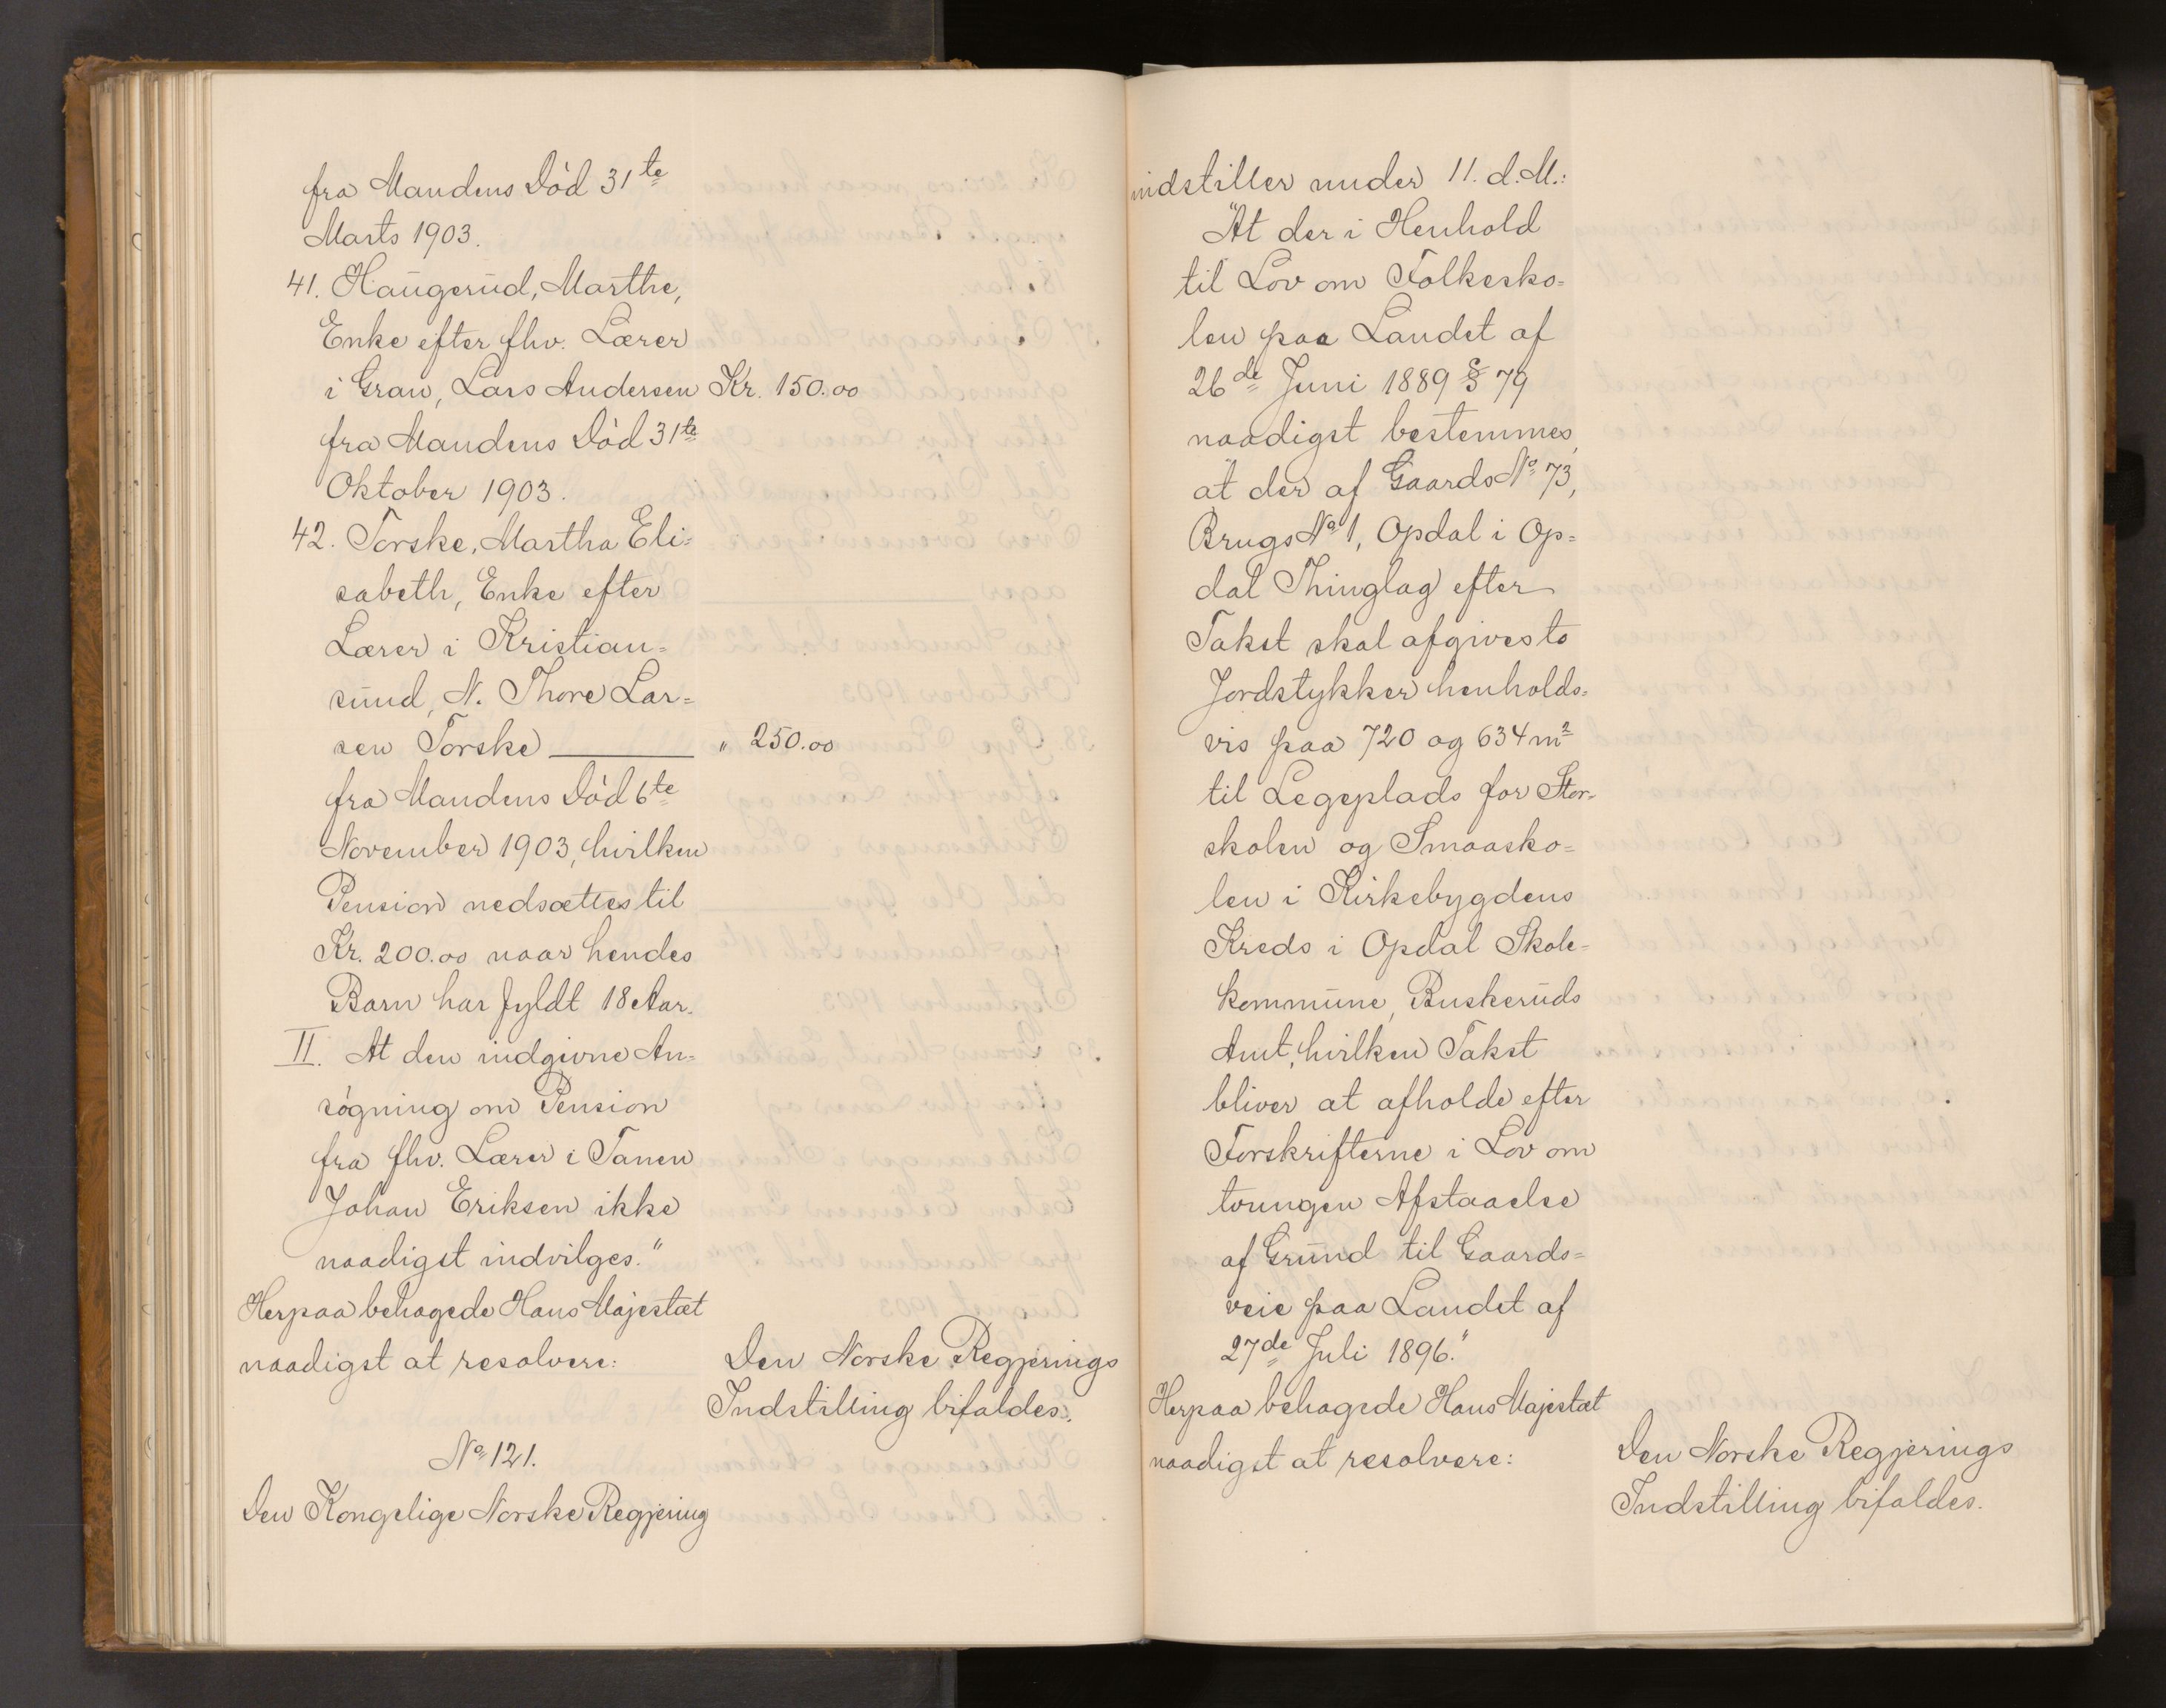 fra Mandens Død 31te
Marts 1903.
41. Haugerud, Marthe,
Enke efter fhv. Lærer
i Gran, Lars Andersen Kr. 150.00
fra Mandens Død 31te
Oktober 1903.
42. Torske, Martha Eli=
sabeth, Enke efter
Lærer i Kristian=
sund, N. Thore Lar=
sen Torske " 250.00
fra Mandens Død 6te
November 1903, hvilken
Pension nedsættes til
Kr. 200.00 naar hendes
Barn har fyldt 18 Aar.
II. At den indgivne An=
søgning om Pension
fra fhv. Lærer i Tanen
Johan Eriksen ikke
naadigst indvilges."
Herpaa behagede Hans Majestæt
naadigst at resolvere:
Den Norske Regjerings
Indstilling bifaldes.
No 121.
Den Kongelige Norske Regjering
indstiller under 11. d. M.:
"At der i Henhold
til Lov om Folkesko=
len paa Landet af
26de Juni 1889 § 79
naadigst bestemmes,
at der af Gaards No 73,
Brugs No 1, Opdal i Op=
dal Thinglag efter
Takst skal afgives to
Jordstykker henholds=
vis paa 720 og 634 m2
til Legeplads for Stor=
skolen og Smaasko=
len i Kirkebygdens
Kreds i Opdal Skole=
kommune, Buskeruds
Amt, hvilken Takst
bliver at afholde efter
Forskrifterne i Lov om
tvungen Afstaaelse
af Grund til Gaards=
veie paa Landet af
27de Juli 1896."
Herpaa behagede Hans Majestæt
naadigst at resolvere:
Den Norske Regjerings
Indstilling bifaldes.